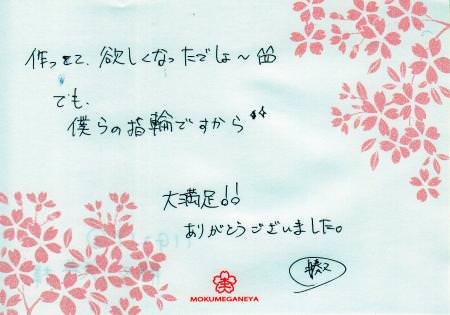 作ってて、欲しくなったでしょ～
でも、
僕らの指輪ですから
大満足!!
ありがとうございました。
MOKUMEGANEYA